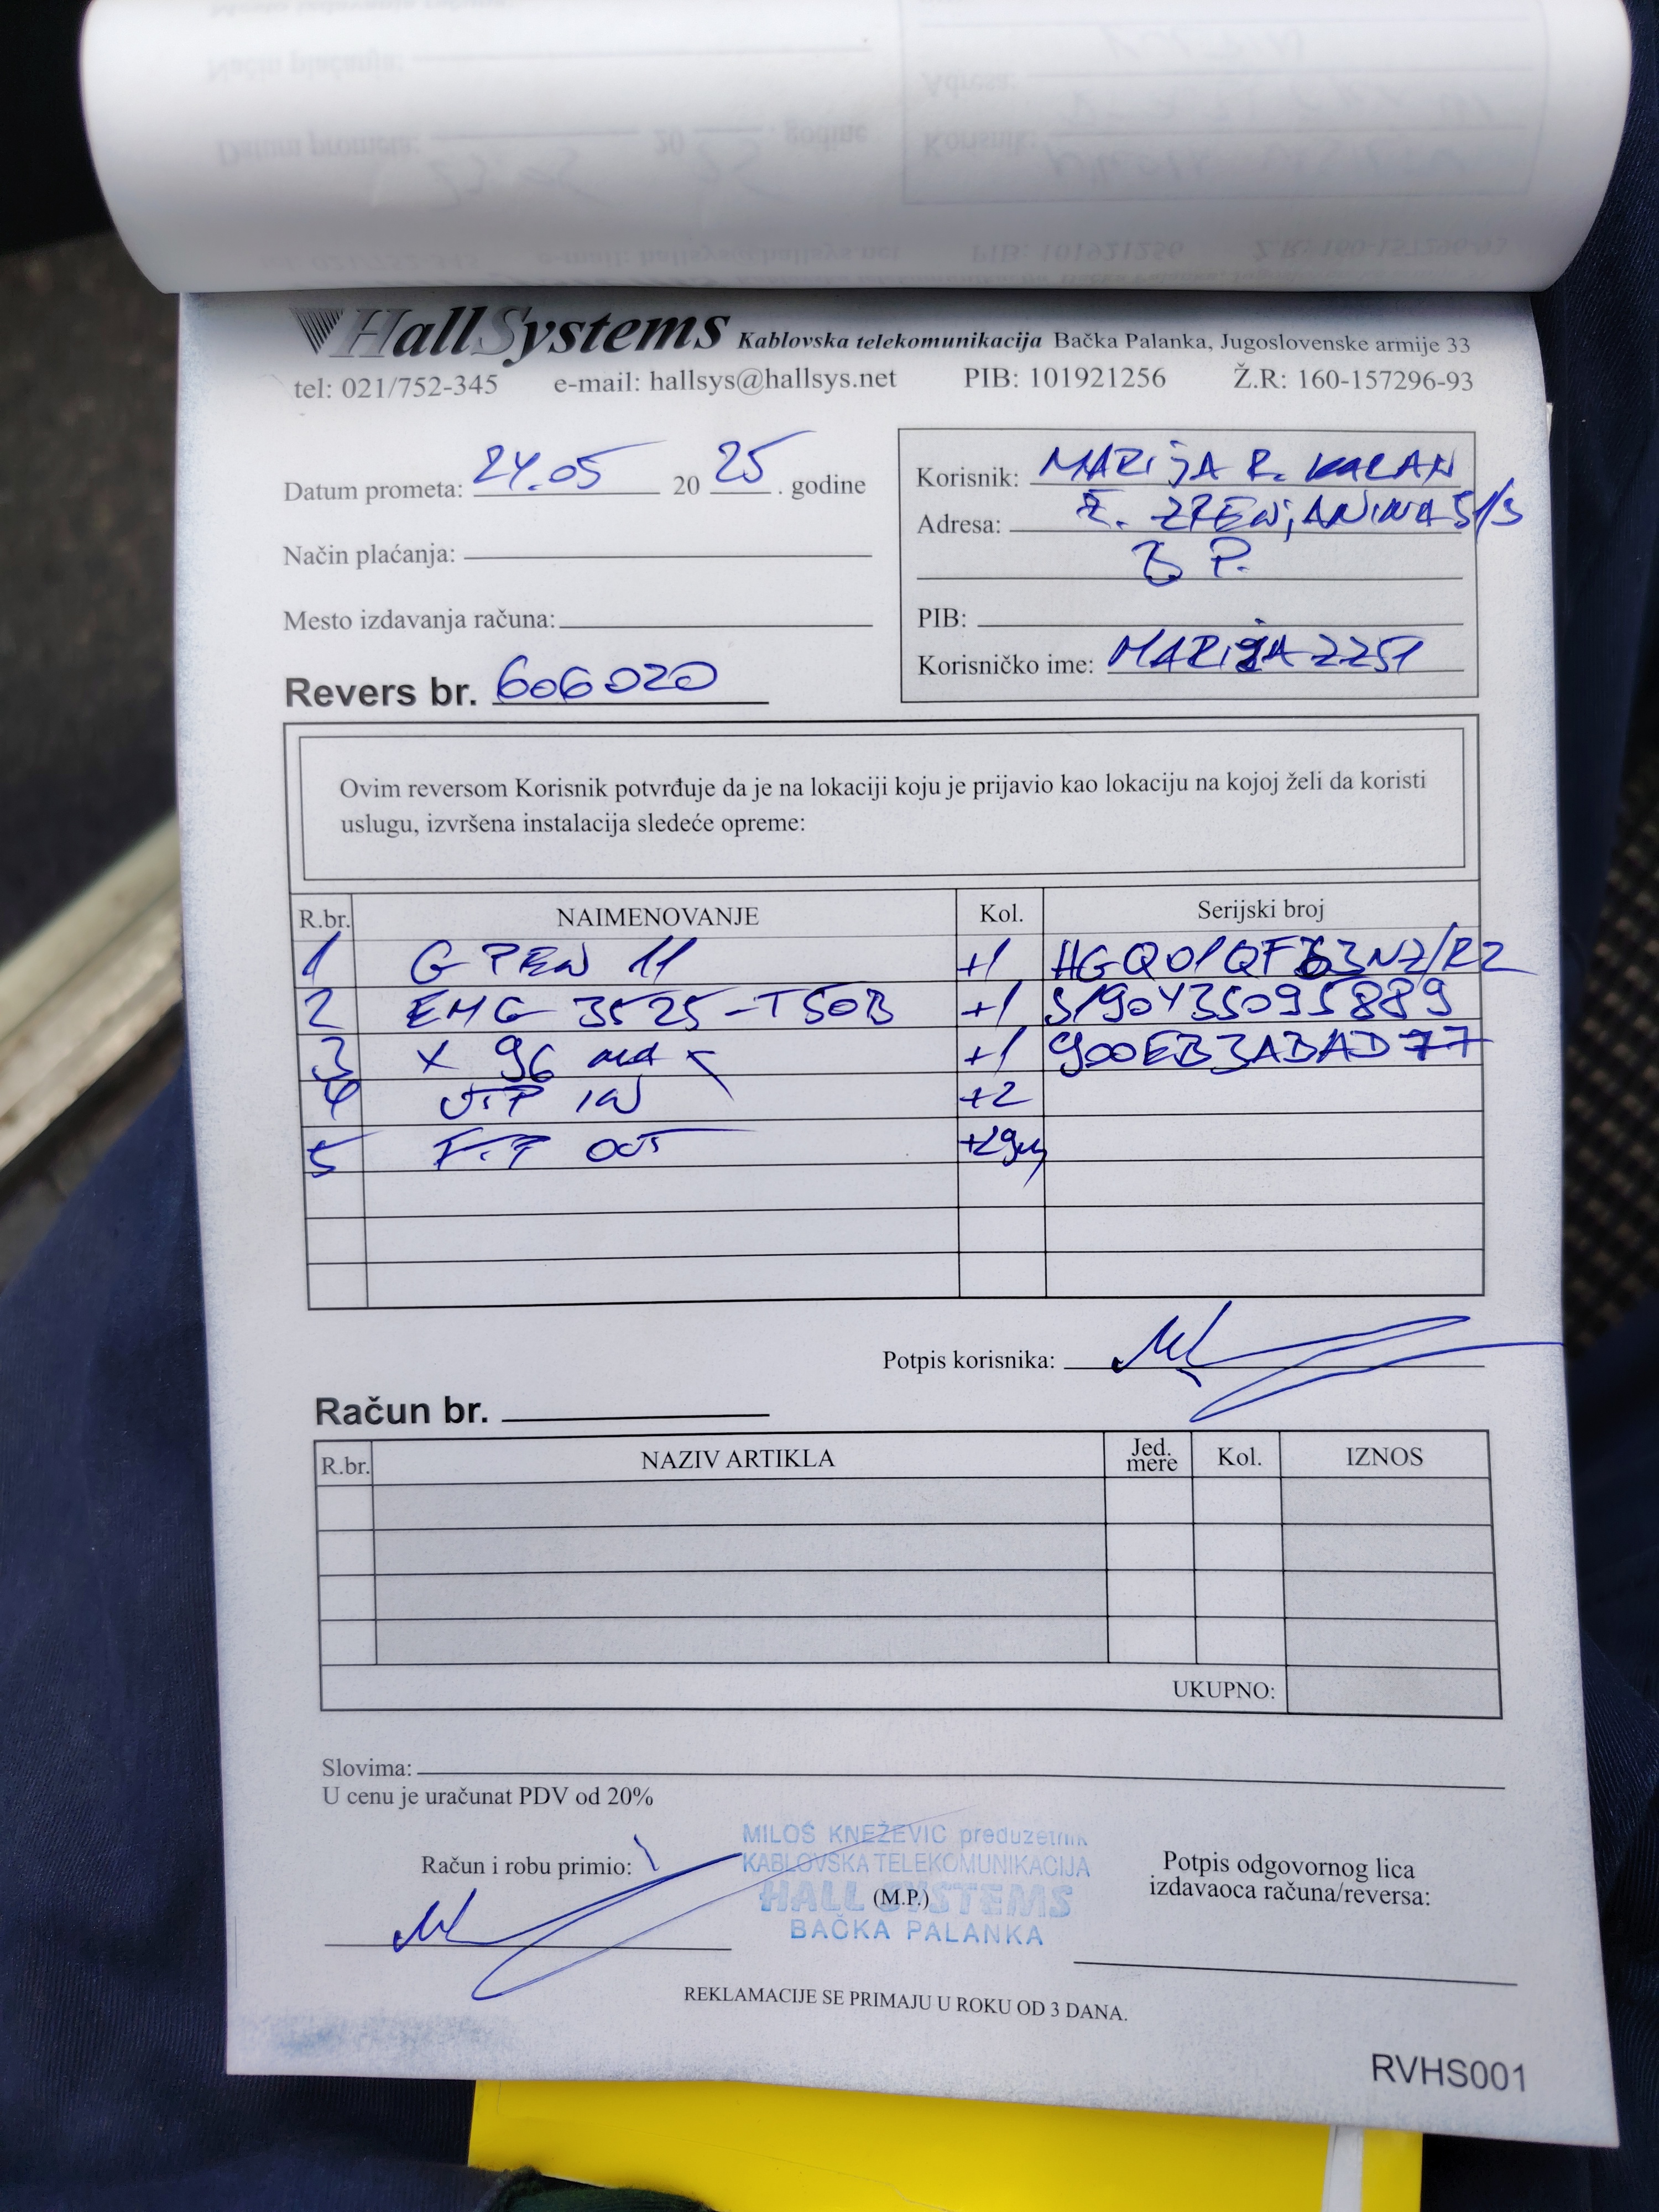 HallSystems Kablovska telekomunikacija Bačka Palanka, Jugoslovenske armije 33
tel: 021/752-345 e-mail: hallsys@hallsys.net PIB: 101921256 Ž.R: 160-157296-93
Datum prometa: 24.05 2025. godine
Način plaćanja:
Mesto izdavanja računa:
Revers br. 606020
Korisnik: MARIJA R.
Adresa: Ž. ZRENJANINA 51/3
B P.
PIB:
Korisničko ime: MARIJA2251
Ovim reversom Korisnik potvrđuje da je na lokaciji koju je prijavio kao lokaciju na kojoj želi da koristi
uslugu, izvršena instalacija sledeće opreme:
R.br. NAIMENOVANJE Kol. Serijski broj
1 G PEN 11 +1
2 EMG 3525-T50B +1 S190Y35095889
3 X 96 +1 900EB3ABAD77
4 UTP IN +2
5 OUT
Potpis korisnika:
Račun br.
R.br. NAZIV ARTIKLA Jed. mere Kol. IZNOS
UKUPNO:
Slovima:
U cenu je uračunat PDV od 20%
Račun i robu primio:
MILOŠ KNEŽEVIĆ preduzetnik
KABLOVSKA TELEKOMUNIKACIJA
HALL SYSTEMS
(M.P.)
BAČKA PALANKA
Potpis odgovornog lica
izdavaoca računa/reversa:
REKLAMACIJE SE PRIMAJU U ROKU OD 3 DANA.
RVHS001